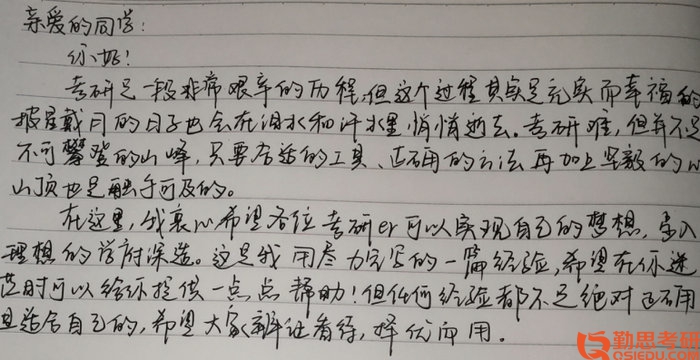 亲爱的同学：
你好！
考研是一段非常艰辛的历程，但这个过程其实是充实而幸福的
披星戴月的日子也会在泪水和汗水里悄悄逝去。考研难，但并不是
不可攀登的山峰，只要合适的工具、正确的方法再加上坚毅的
山顶也是触手可及的。
在这里，我衷心希望各位考研er可以实现自己的梦想，考入
理想的学府深造。这是我用尽力完写的一篇经验，希望在你迷
茫时可以给你提供一点点帮助！但任何经验都不是绝对正确
且适合自己的，希望大家辩证看待，择优而用。
勤思考研
QSIEDU.COM